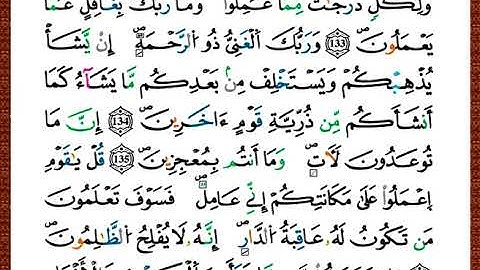 وَلِكُلٍّ دَرَجَاتٌ مِّمَّا عَمِلُواْ وَمَا رَبُّكَ بِغَافِلٍ عَمَّا
يَعْمَلُونَ 133 وَرَبُّكَ اَلْغَنِيُّ ذُو اُلرَّحْمَةِ إِنْ يَّشَأْ
يُذْهِبْكُمْ وَيَسْتَخْلِفْ مِنۢ بَعْدِكُم مَّا يَشَآءُ كَمَا
أَنشَأَكُم مِّن ذُرِّيَّةِ قَوْمٍ ءَاخَرِينَ 134 إِنَّ مَا
تُوعَدُونَ لَأٓتٍ وَمَا أَنتُم بِمُعْجِزِينَ 135 قُلْ يَٰقَوْمِ
اِعْمَلُواْ عَلَىٰ مَكَانَتِكُمْ إِنِّي عَامِلٌ فَسَوْفَ تَعْلَمُونَ
مَن تَكُونُ لَهُۥ عَٰقِبَةُ اُلدَّارِ إِنَّهُۥ لَا يُفْلِحُ اُلظَّٰلِمُونَ